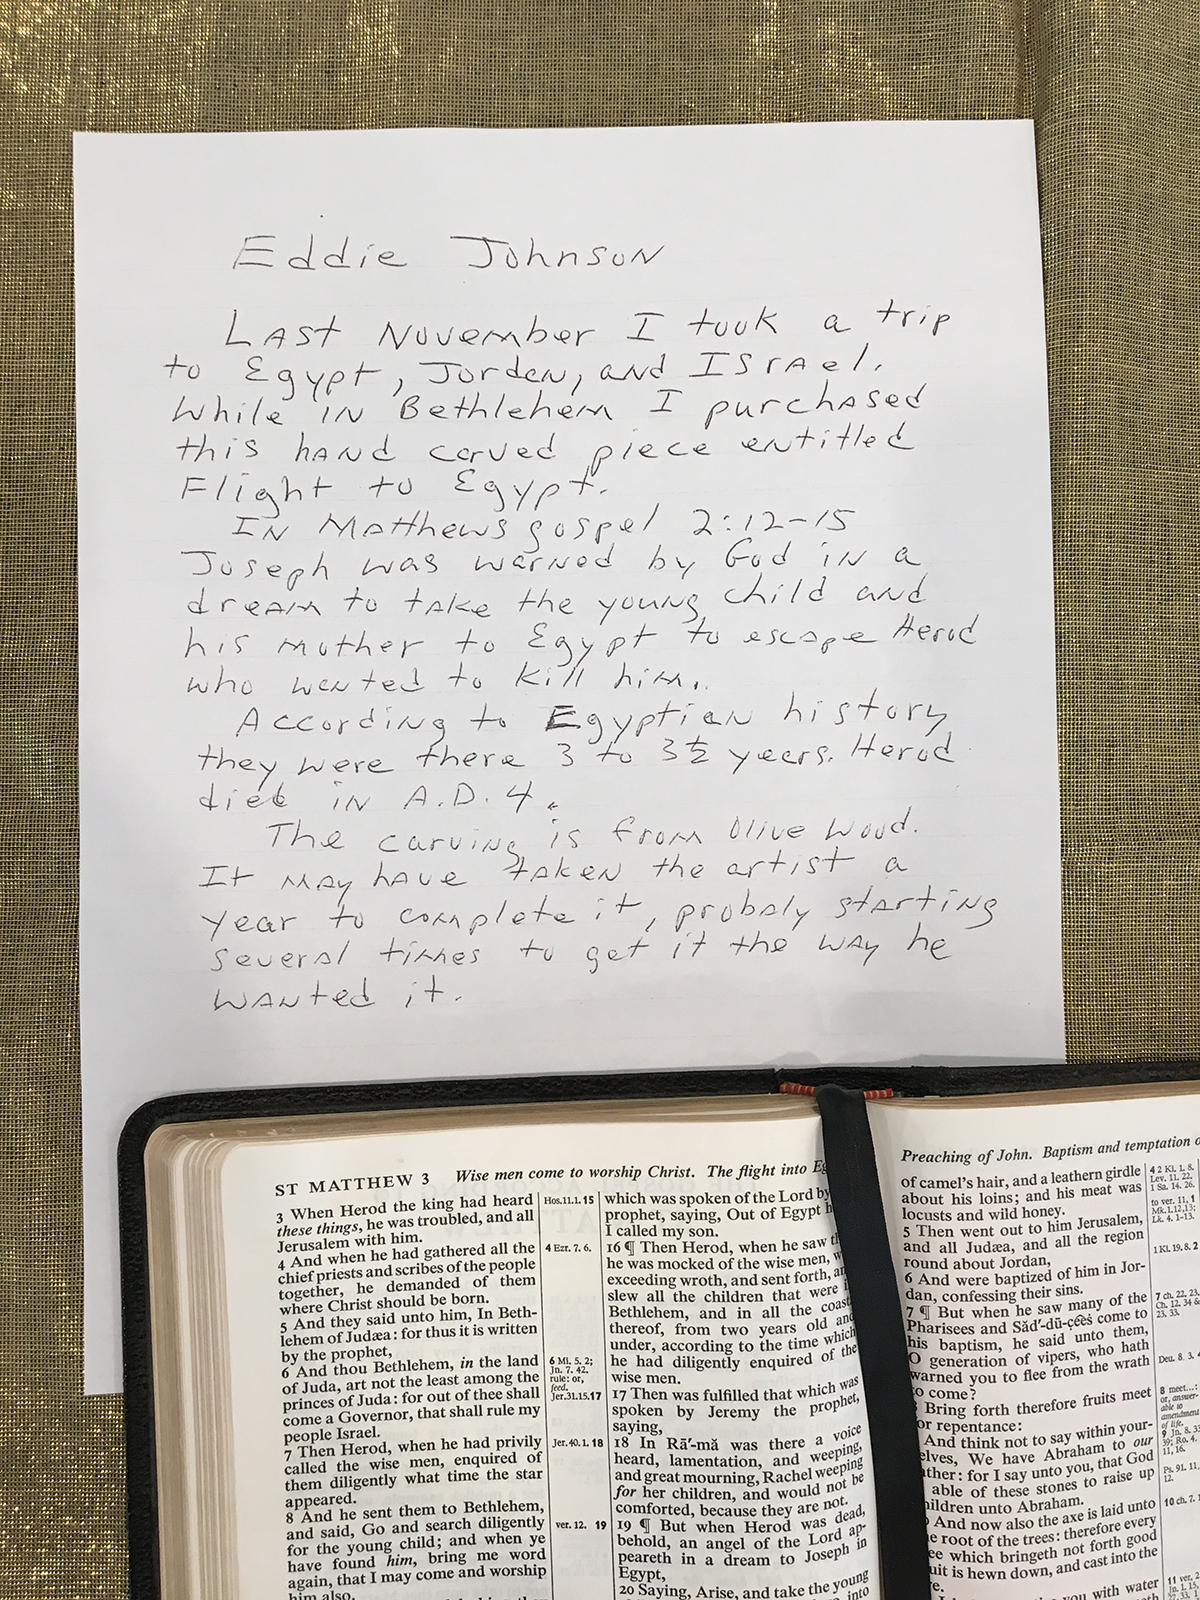 Eddie Johnson
Last November I took a trip
to Egypt, Jorden, and Israel.
While in Bethlehem I purchased
this hand carved piece entitled
Flight to Egypt.
In Matthews gospel 2:12-15
Joseph was warned by God in a
dream to take the young child and
his mother to Egypt to escape Herod
who wanted to kill him.
According to Egyptian history
they were there 3 to 3½ years. Herod
died in A.D. 4.
The carving is from Olive Wood.
It may have taken the artist a
year to complete it, probaly starting
several times to get it the way he
wanted it.
ST MATTHEW 3 Wise men come to worship Christ. The flight into Eg
3 When Herod the king had heard
these things, he was troubled, and all
Jerusalem with him.
4 And when he had gathered all the
chief priests and scribes of the people
together, he demanded of them
where Christ should be born.
5 And they said unto him, In Beth-
lehem of Judæa: for thus it is written
by the prophet,
6 And thou Bethlehem, in the land
of Juda, art not the least among the
princes of Juda: for out of thee shall
come a Governor, that shall rule my
people Israel.
7 Then Herod, when he had privily
called the wise men, enquired of
them diligently what time the star
appeared.
8 And he sent them to Bethlehem,
and said, Go and search diligently
for the young child; and when ye
have found him, bring me word
again, that I may come and worship
him also.
Hos.11.1. 15
4 Ezr. 7. 6.
6 Mi. 5. 2;
Jn. 7. 42.
rule: or,
feed.
Jer.31.15. 17
Jer. 40. 1. 18
ver. 12. 19
which was spoken of the Lord by
prophet, saying, Out of Egypt h
I called my son.
16 ¶ Then Herod, when he saw th
he was mocked of the wise men, w
exceeding wroth, and sent forth, an
slew all the children that were i
Bethlehem, and in all the coast
thereof, from two years old and
under, according to the time which
he had diligently enquired of the
wise men.
17 Then was fulfilled that which was
spoken by Jeremy the prophet,
saying,
18 In Rā′-mă was there a voice
heard, lamentation, and weeping,
and great mourning, Rachel weeping
for her children, and would not be
comforted, because they are not.
19 ¶ But when Herod was dead,
behold, an angel of the Lord ap-
peareth in a dream to Joseph in
Egypt,
20 Saying, Arise, and take the young
into
Preaching of John. Baptism and temptation o
of camel's hair, and a leathern girdle
about his loins; and his meat was
locusts and wild honey.
5 Then went out to him Jerusalem,
and all Judæa, and all the region
round about Jordan,
6 And were baptized of him in Jor-
dan, confessing their sins.
7 ¶ But when he saw many of the
Pharisees and Săd′-dū-çēēs come to
his baptism, he said unto them,
O generation of vipers, who hath
warned you to flee from the wrath
to come?
Bring forth therefore fruits meet
or repentance:
And think not to say within your-
elves, We have Abraham to our
ather: for I say unto you, that God
able of these stones to raise up
hildren unto Abraham.
And now also the axe is laid unto
e root of the trees: therefore every
ee which bringeth not forth good
uit is hewn down, and cast into the
re.
you with water
4 2 Ki. 1. 8.
Lev. 11. 22.
1 Sa. 14. 26.
to ver. 11,
Mk.1.12,13;
Lk. 4. 1-13.
1 Ki. 19. 8. 2
7 ch. 22, 23.
Ch. 12. 34
23. 33.
Deu. 8. 3.
8 meet...:
or, answer-
able to
amendment
of life.
9 Jn. 8. 3
39; Ro. 4.
11, 16.
Ps. 91. 11,
12.
10 ch. 7.
11 ver.
Jn. 1. 15,